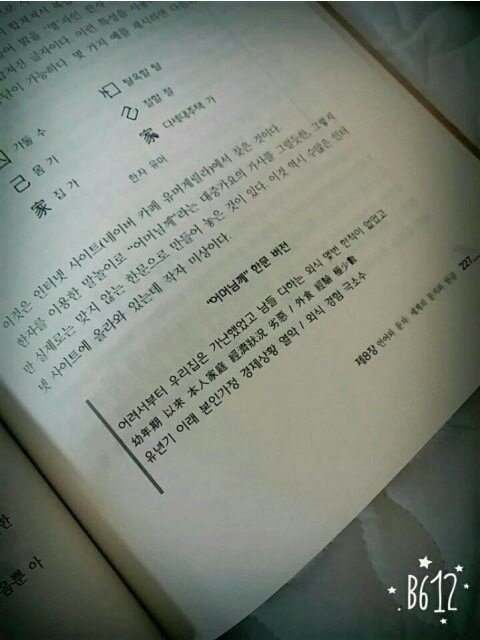 합쳐진 글자이다. 이런 특성을
가능하다. 몇 가지 예를 제시하면
거둘 수 탈옥할 탈
己 몸 기 정할 절
家 집 가 家 다세대주택 가
한자 유머
이것은 인터넷 사이트(네이버 카페 유머게릴라)에서 찾은 것이다.
한자를 이용한 말놀이로 "어머님께"라는 대중가요의 가사를 그럴듯한, 그렇지
만 실제로는 맞지 않는 한문으로 만들어 놓은 것이 있다. 이것 역시 수많은 인터
넷 사이트에 올라와 있는데 작자 미상이다.
"어머님께" 한문 버전
어려서부터 우리집은 가난했었고 남들 다하는 외식 몇번 한적이 없었고
幼年期 以來 本人家庭 經濟狀況 劣惡 / 外食 經驗 極少數
유년기 이래 본인가정 경제상황 열악 / 외식 경험 극소수
제8장 언어와 문자: 세계의 문자와 한글 227
한
음뿐 아
B612